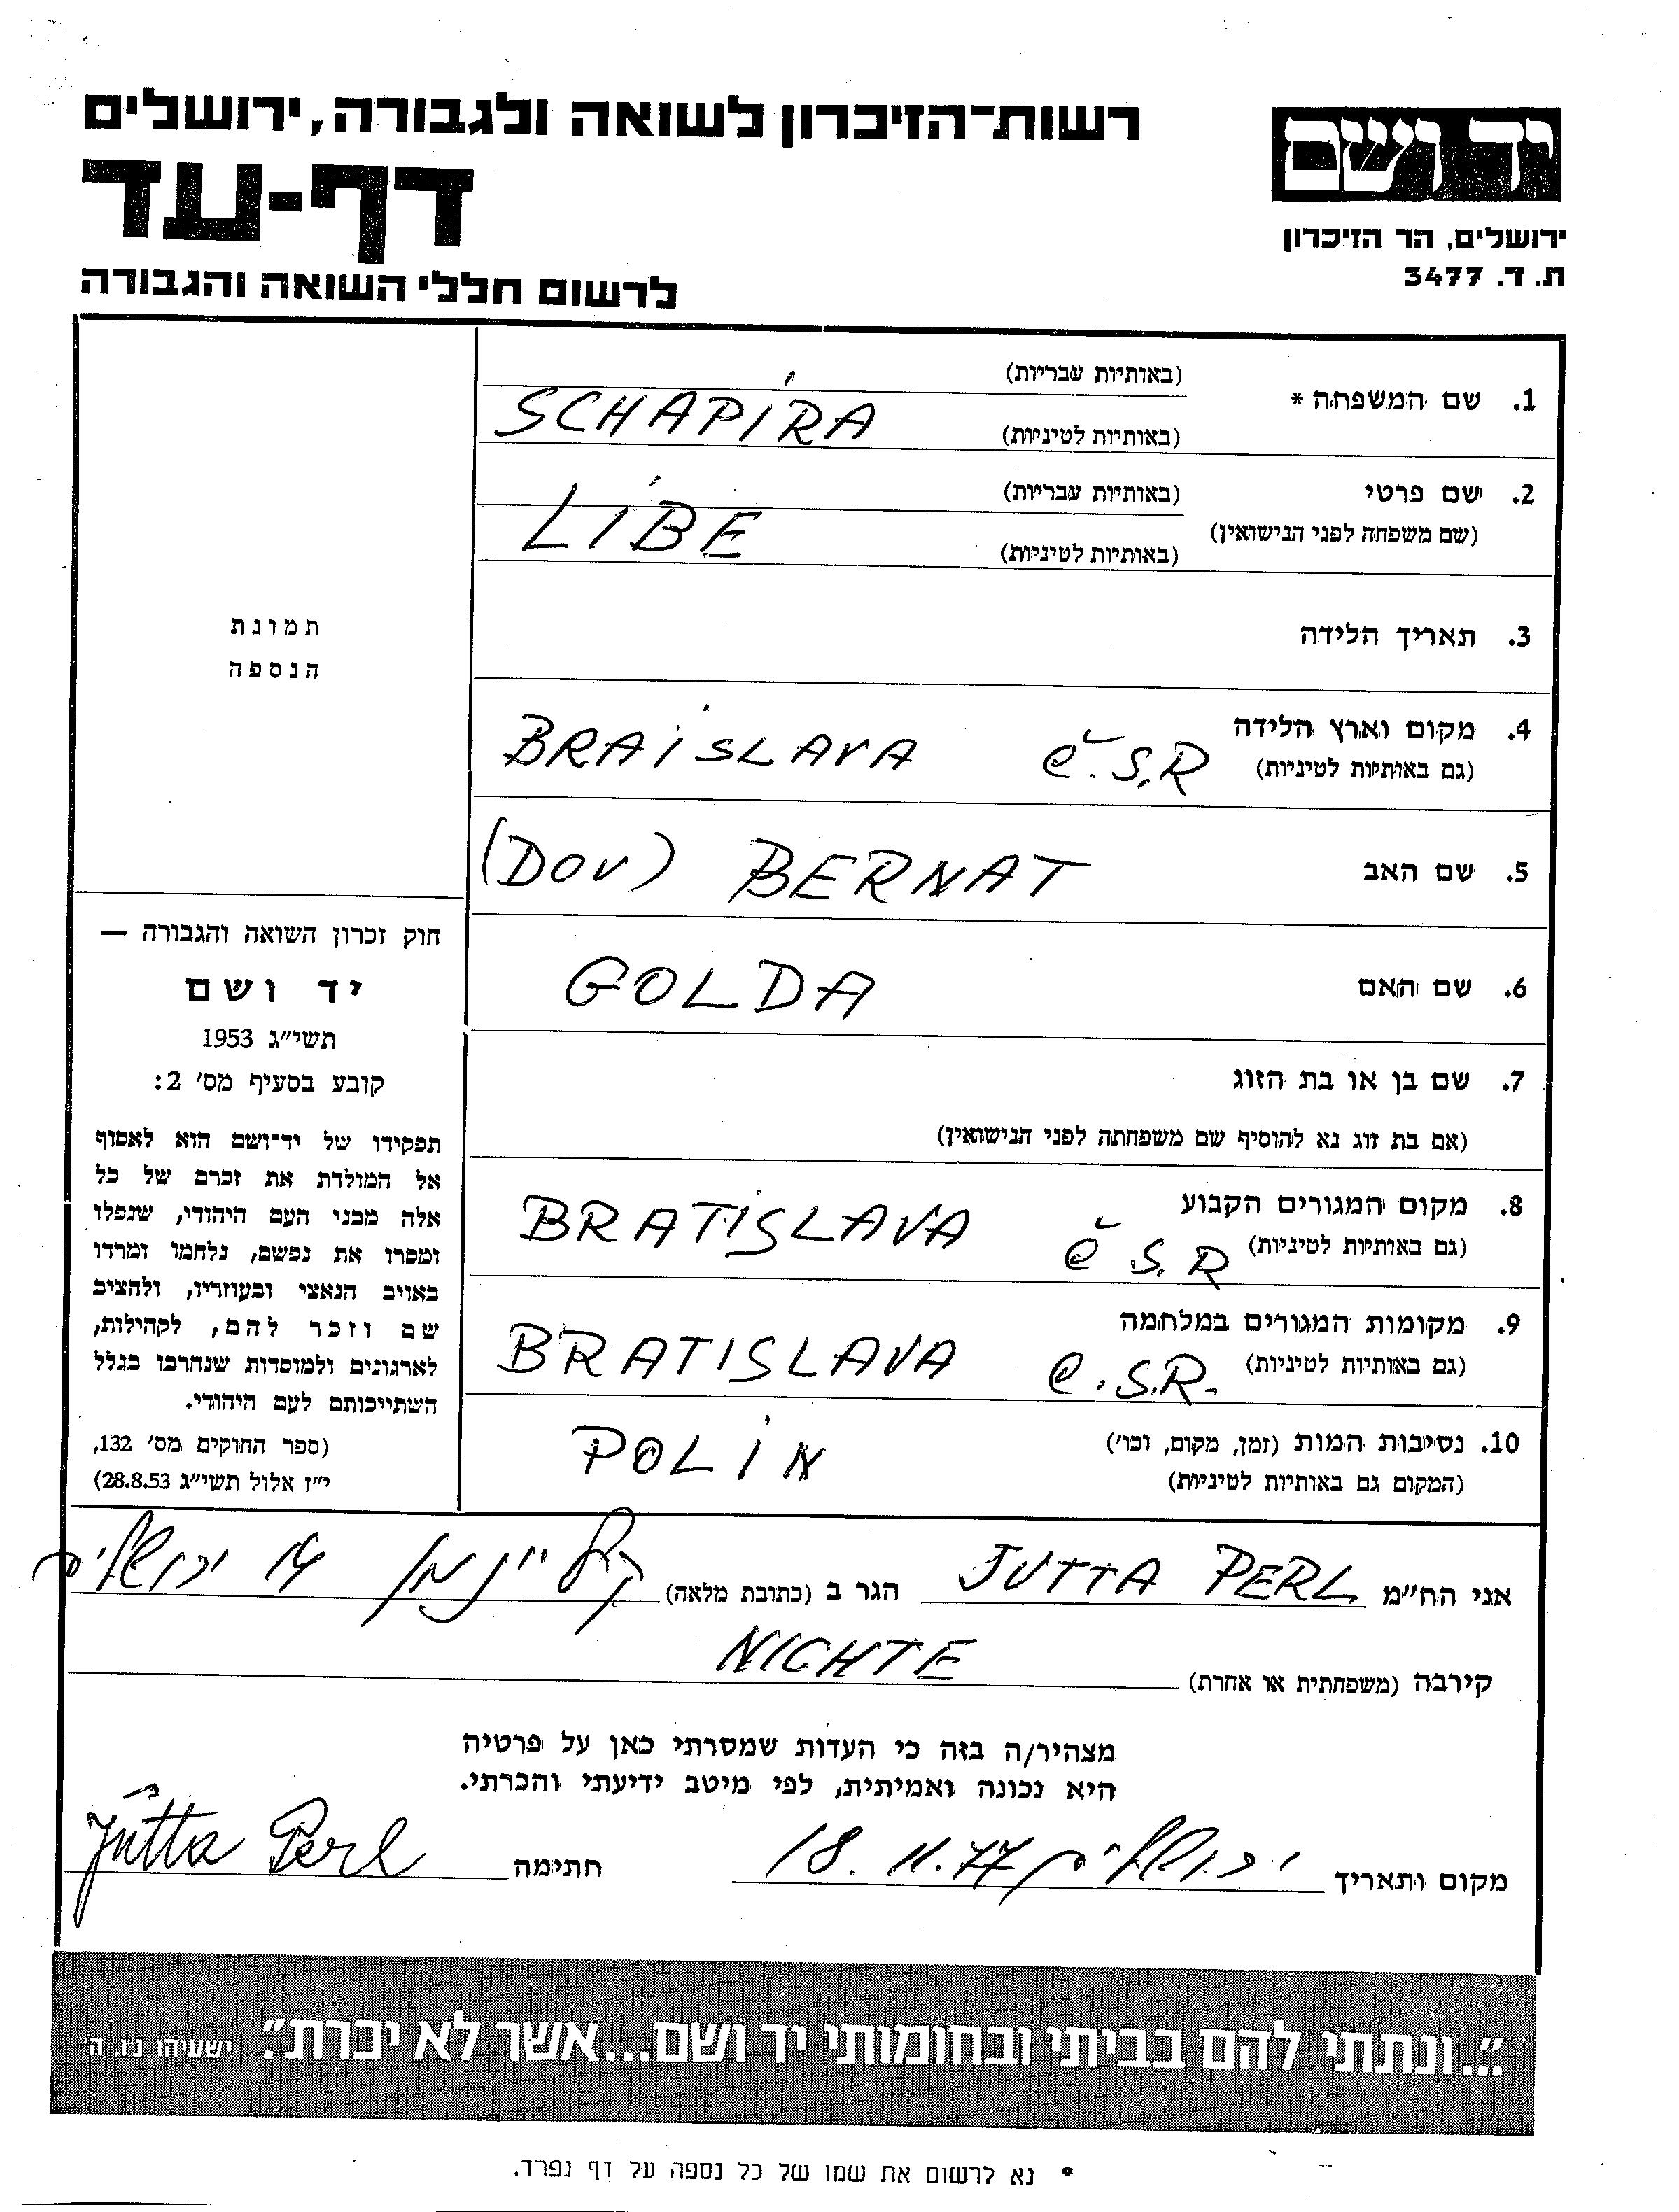 רשות־הזיכרון לשואה ולגבורה, ירושלים
דף-עד
לרשום חללי השואה והגבורה
יד ושם
ירושלים, הר הזיכרון
ת. ד. 3477
1. שם המשפחה * (באותיות עבריות)
(באותיות לטיניות) SCHAPIRA
2. שם פרטי (באותיות עבריות)
(שם משפחה לפני הנישואין) (באותיות לטיניות) LIBE
3. תאריך הלידה
תמונת
הנספה
4. מקום וארץ הלידה
(גם באותיות לטיניות) BRAISLAVA Č.S.R
5. שם האב (DOV) BERNAT
6. שם האם GOLDA
7. שם בן או בת הזוג
(אם בת זוג נא להוסיף שם משפחתה לפני הנישואין)
8. מקום המגורים הקבוע
(גם באותיות לטיניות) BRATISLAVA Č S.R
9. מקומות המגורים במלחמה
(גם באותיות לטיניות) BRATISLAVA C.S.R.
10. נסיבות המות (זמן, מקום, וכו')
(המקום גם באותיות לטיניות) POLIN
חוק זכרון השואה והגבורה —
יד ושם
תשי"ג 1953
קובע בסעיף מס' 2:
תפקידו של יד־ושם הוא לאסוף
אל המולדת את זכרם של כל
אלה מבני העם היהודי, שנפלו
ומסרו את נפשם, נלחמו ומרדו
באויב הנאצי ובעוזריו, ולהציב
שם וזכר להם, לקהילות,
לארגונים ולמוסדות שנחרבו בגלל
השתייכותם לעם היהודי.
(ספר החוקים מס' 132,
י"ז אלול תשי"ג 28.8.53)
אני הח"מ JUTTA PERL הגר ב (כתובת מלאה) ירושלים
קירבה (משפחתית או אחרת) NICHTE
מצהיר/ה בזה כי העדות שמסרתי כאן על פרטיה
היא נכונה ואמיתית, לפי מיטב ידיעתי והכרתי.
מקום ותאריך ירושלים 18.11.77 חתימה Jutta Perl
"...ונתתי להם בביתי ובחומותי יד ושם...אשר לא יכרת." ישעיהו נו, ה'
* נא לרשום את שמו של כל נספה על דף נפרד.